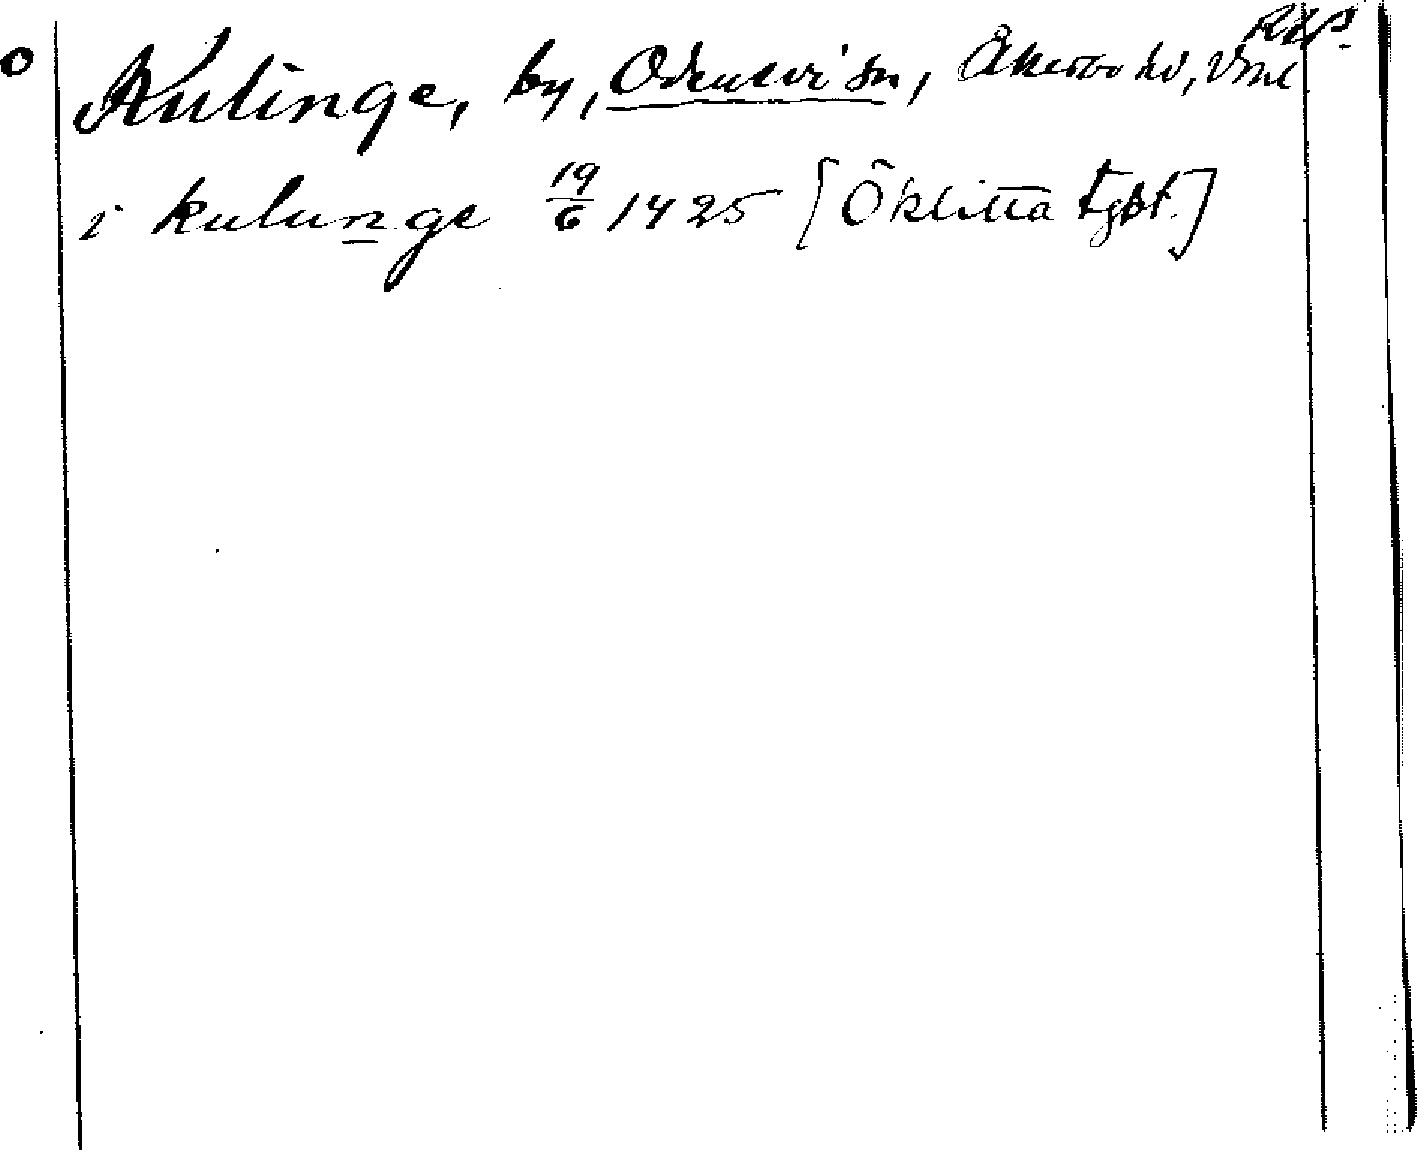 Kulinge, by, Odensvi sn, Åkerbo hd, Vsml
i kulunge 19/6 1425 [Öklitta tgpt.]